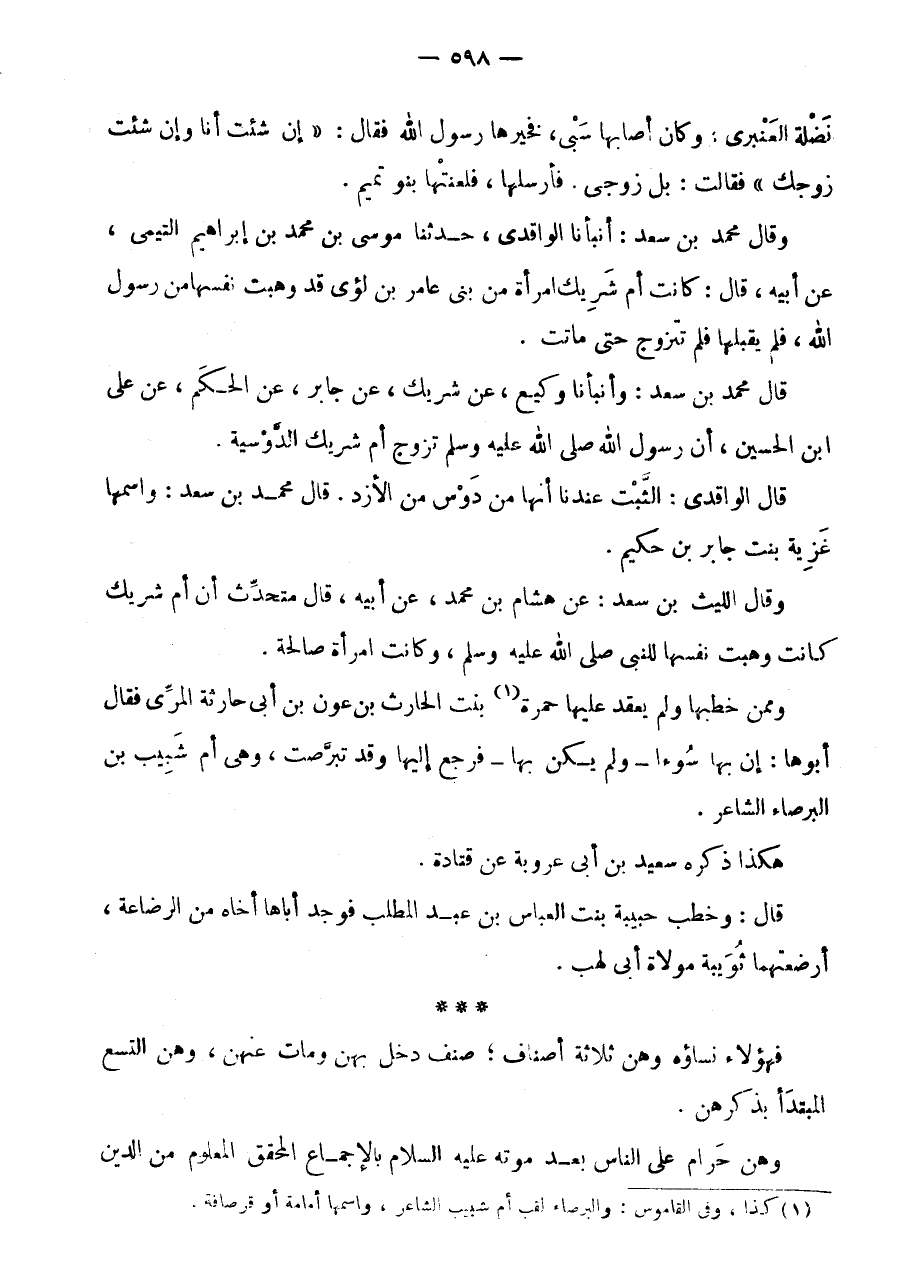 — ٥٩٨ —
نَضْلة العَنْبرى : وكان أصابها سَبْى، فخيرها رسول الله فقال : « إن شئت أنا وإن شئت
زوجك » فقالت : بل زوجى . فأرسلها ، فلعنتْها بنو تميم .
وقال محمد بن سعد : أنبأنا الواقدى ، حـدثنا موسى بن محمد بن إبراهيم التيمى ،
عن أبيه ، قال : كانت أم شَرِيك امرأة من بنى عامر بن لؤى قد وهبت نفسها من رسول
الله ، فلم يقبلها فلم تتزوج حتى ماتت .
قال محمد بن سعد : وأنبأنا وكيع ، عن شريك ، عن جابر ، عن الحـكَم ، عن على
ابن الحسين ، أن رسول الله صلى الله عليه وسلم تزوج أم شريك الدَّوْسية .
قال الواقدى : الثَّبْت عندنا أنها من دَوْس من الأزد . قال محمـد بن سعد : واسمها
غَزِية بنت جابر بن حكيم .
وقال الليث بن سعد : عن هشام بن محمد ، عن أبيه ، قال متحدِّث أن أم شريك
كانت وهبت نفسها للنبى صلى الله عليه وسلم ، وكانت امرأة صالحة .
وممن خطبها ولم يعقد عليها حمرة(١) بنت الحارث بن عون بن أبى حارثة المرِّى فقال
أبوها : إن بها سُوءا ـ ولم يـكن بها ـ فرجع إليها وقد تبرَّصت ، وهى أم شَبِيب بن
البرصاء الشاعر .
هكذا ذكره سعيد بن أبى عروبة عن قتادة .
قال : وخطب حبيبة بنت العباس بن عبـد المطلب فوجد أباها أخاه من الرضاعة ،
أرضعتهما ثُوَيبة مولاة أبى لهب .
* * *
فهؤلاء نساؤه وهن ثلاثة أصناف ؛ صنف دخل بهن ومات عنهن ، وهن التسع
المبتدَأ بذكرهن .
وهن حَرام على الناس بعـد موته عليه السلام بالإجمـاع المحقق المعلوم من الدين
(١) كذا ، وفى القاموس : والبرصاء لقب أم شبيب الشاعر ، واسمها أمامة أو قرصافة .